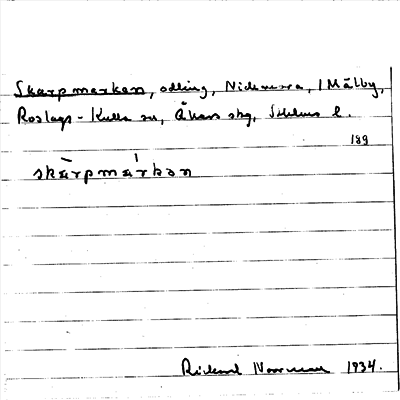 Skarpmarken, odling, Nidemossa, i Målby,
Roslags-Kulla sn, Åkers skg, Sthlms l.
189
skàrpmárkən
Rickard Norrman 1934.